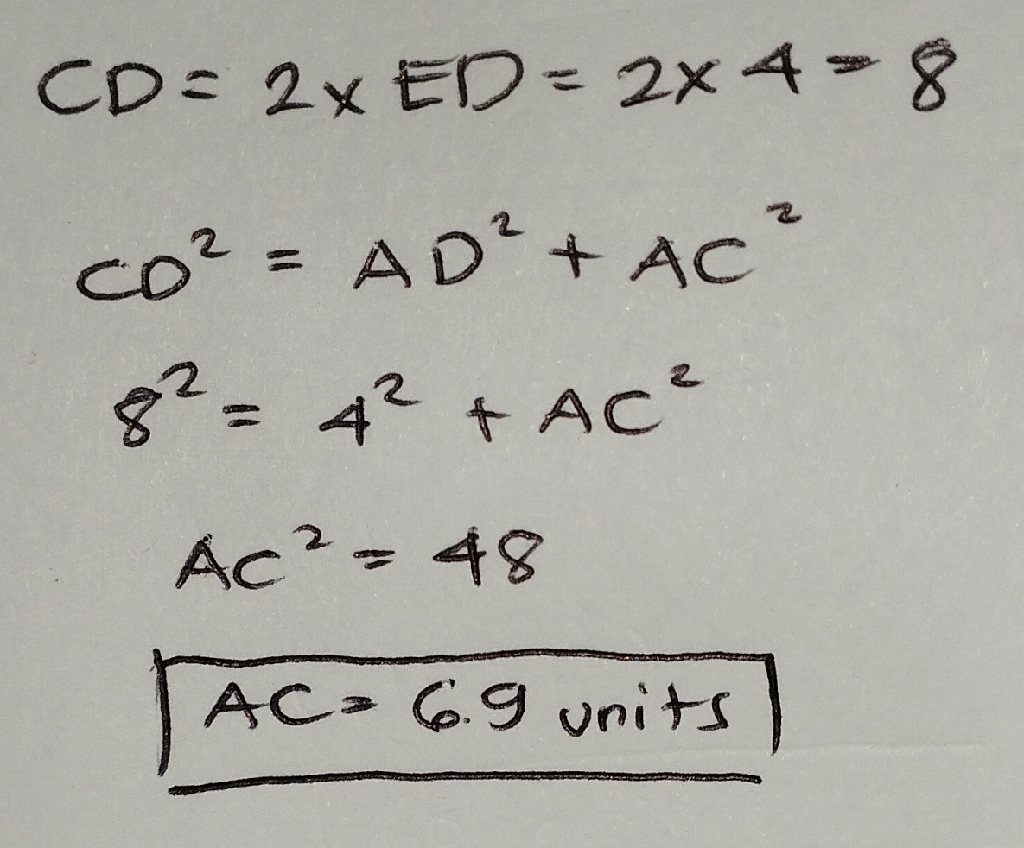 CD = 2 x ED = 2 x 4 = 8
CD² = AD² + AC²
8² = 4² + AC²
AC² = 48
AC = 6.9 units